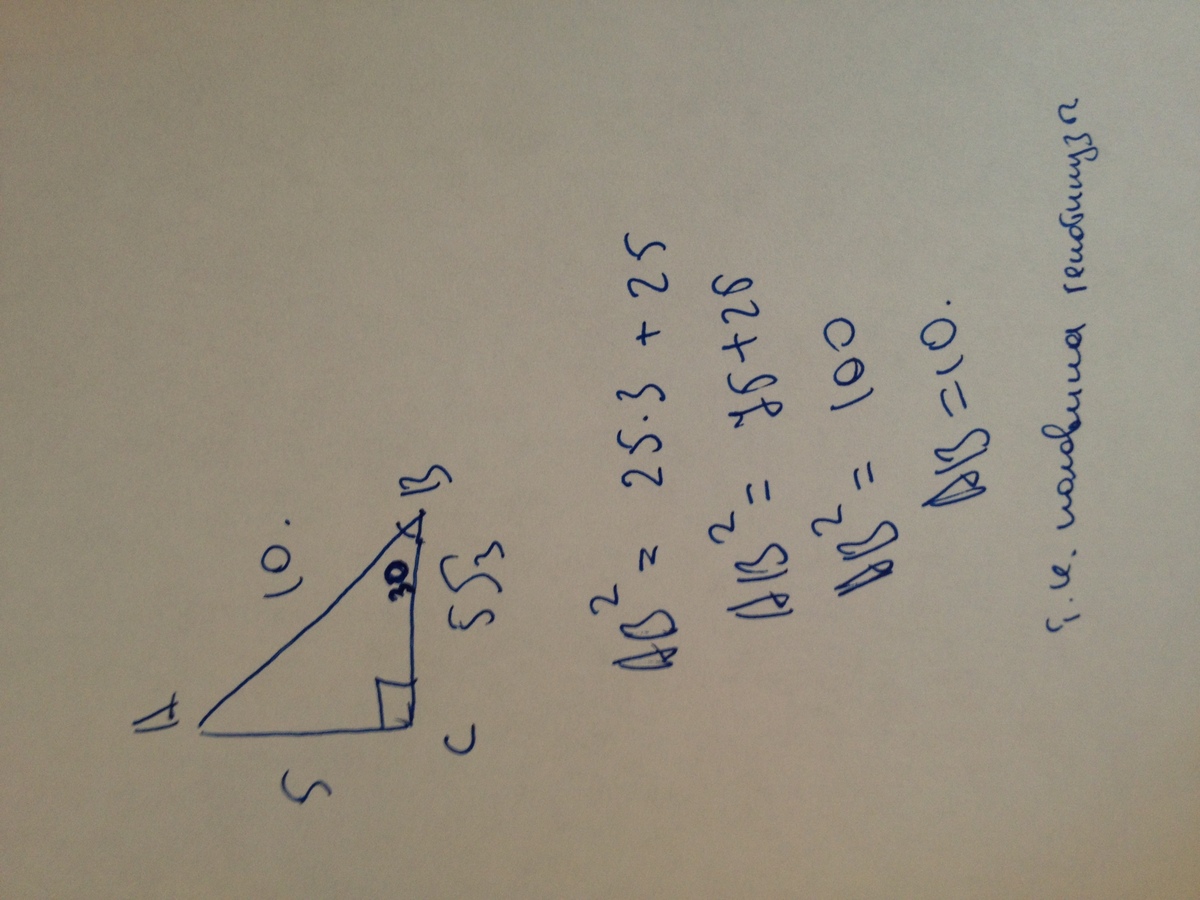 A
10.
5
30
B
C
5√3
AB² = 25·3 + 25
AB² = 75+25
AB² = 100
AB = 10.
т.к. половина гепотинузы